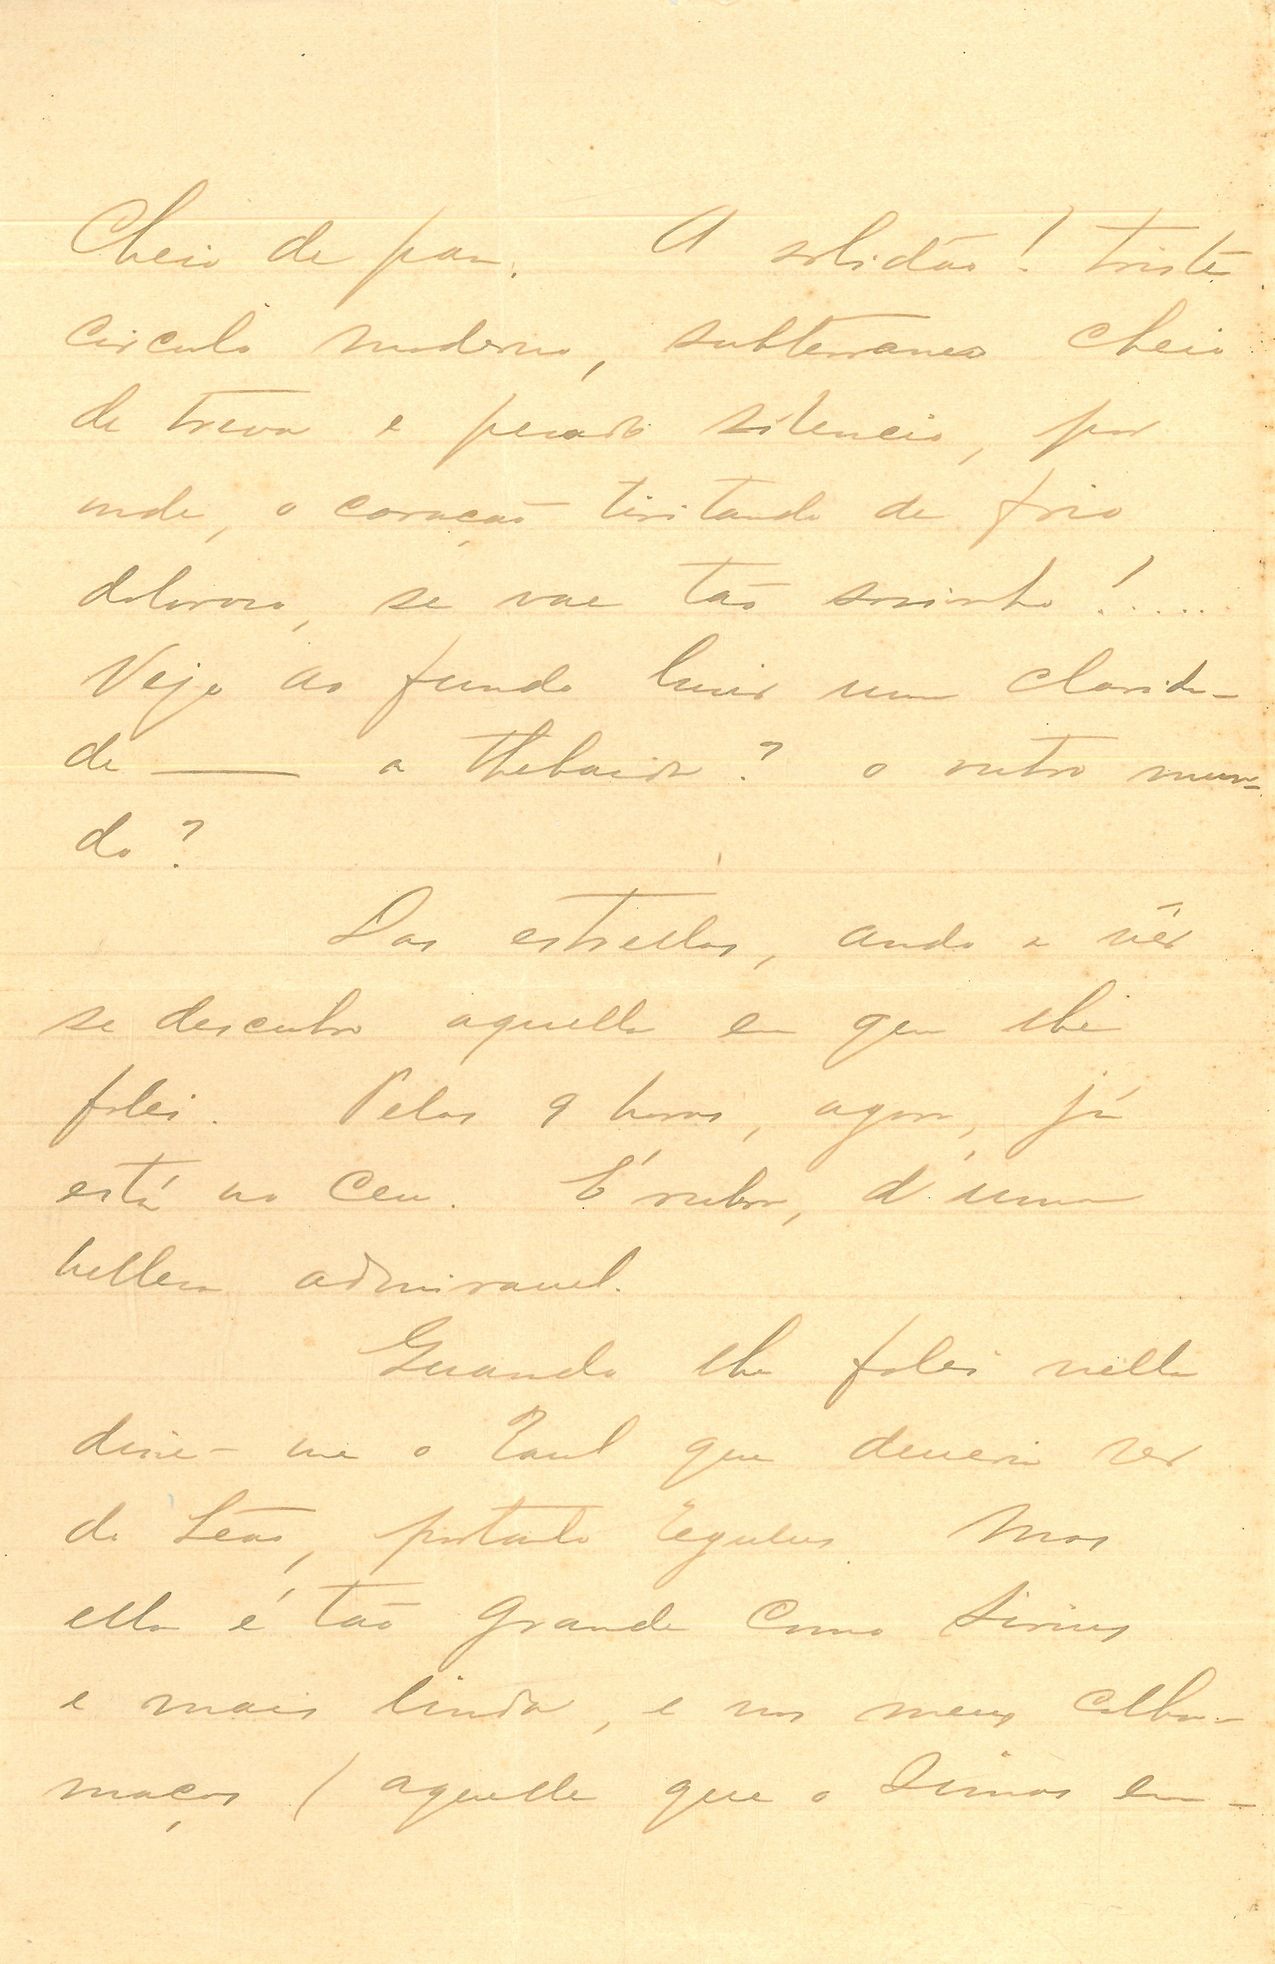 Cheio de paz. A solidão! triste
circulo moderno, subterraneo cheio
de treva e pesado silencio, por
onde, o coração tiritando de frio
doloroso, se vae tão sosinho!.....
Vejo ao fundo luzir uma clarida-
de — a Thebaida? o outro mun-
do?
Das estrellas, ando a vêr
se descubro aquella em que lhe
falei. Pelas 9 horas, agora, já
está no ceu. É rubra, d'uma
belleza admiravel.
Quando lhe falei nella
disse-me o Raul que deveria ser
do Leão, portanto Regulus. Mas
ella é tão grande como Sirius
e mais linda, e nos meus calha-
maços (aquelle que o Simas em-